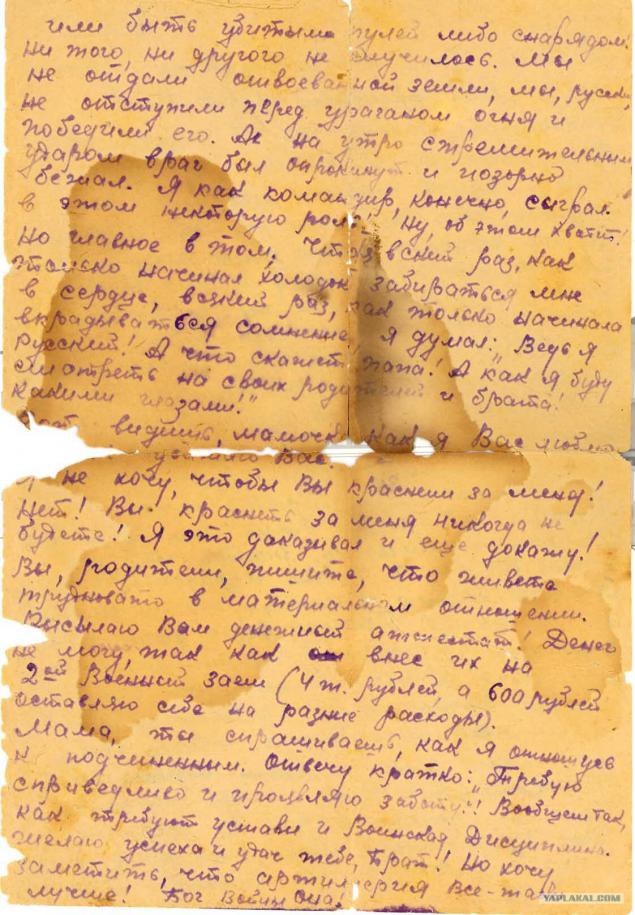 или быть убитыми пулей либо снарядом.
Ни того, ни другого не случилось. Мы
не отдали отвоеванной земли, мы, русские,
не отступили перед ураганом огня и
победили его. А на утро стремительным
ударом враг был опрокинут и позорно
бежал. Я как командир, конечно, сыграл
в этом некоторую роль! Ну, об этом хватит!
Но главное в том, что всякий раз, как
только начинал холодок забираться мне
в сердце, всякий раз, как только начинала
вкрадываться сомнение, я думал: „Ведь я
русский! А что скажет папа! А как я буду
смотреть на своих родителей и брата!
Какими глазами!"
видишь, мамочка, как я Вас люблю
Вас.
Я не хочу, чтобы Вы краснели за меня!
Нет! Вы краснеть за меня никогда не
будете! Я это доказывал и еще докажу!
Вы, родители, пишите, что живете
трудновато в материальном отношении.
Высылаю Вам денежный аттестат! Денег
не могу, так как внес их на
2ой Военный заем (4 т. рублей, а 600 рублей
оставляю себе на разные расходы).
Мама, ты спрашиваешь, как я отношусь
к подчиненным. Отвечу кратко: „Требую
справедливо и проявляю заботу"! Вообщем так,
как требуют уставы и Воинская Дисциплина.
Желаю успеха и удач тебе, Брат! Но хочу
заметить, что артиллерия все-таки
лучше! Бог Войны Она.
YAPLAKAL.COM